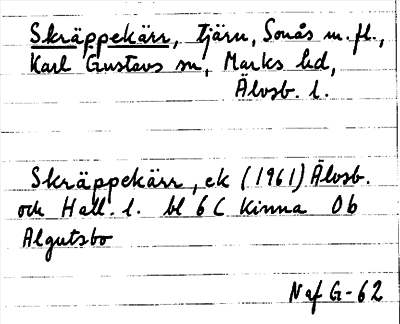 Skräppekärr, tjärn, Sonås m.fl.,
Karl Gustavs sn, Marks hd,
Älvsb. l.
Skräppekärr, ek (1961) Älvsb.
och Hall. l. bl 6 C Kinna 0b
Algutsbo
Naf G-62